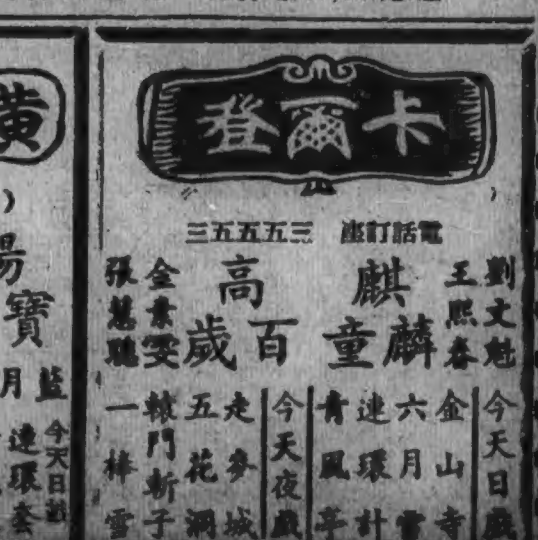 卡爾登
電話訂座 三五五五三
劉文魁
王熙春
麒麟童
高百歲
金素雯
張慧聰
今天日戲
金山寺
六月雪
連環計
青風亭
今天夜戲
走麥城
五花洞
轅門斬子
一捧雪
黃
楊寶
藍月
今天日戲
連環套